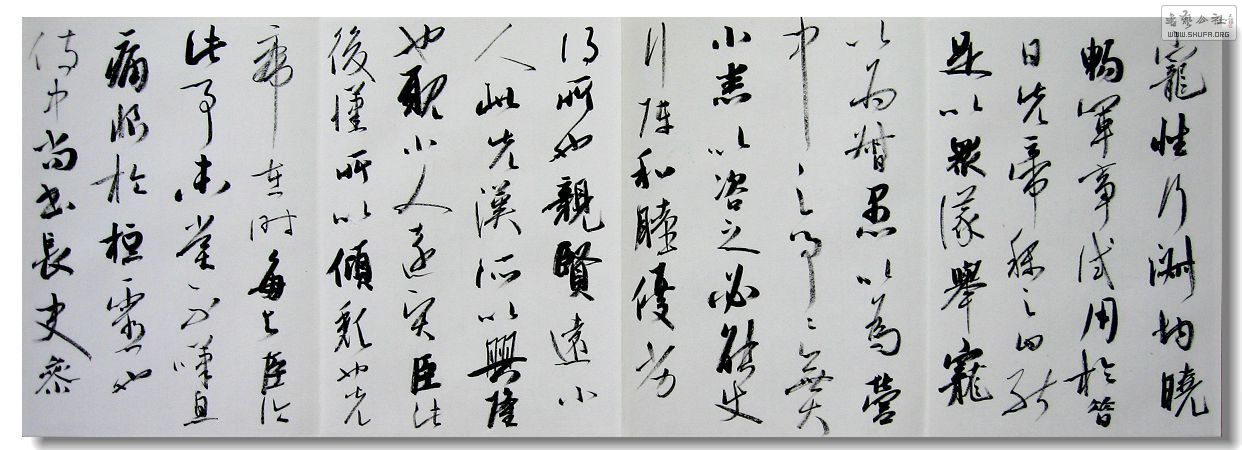 寵性行淑均曉
暢軍事試用於昔
日先帝稱之曰能
是以眾議舉寵
以為督愚以為營
中之事〻無大
小悉以咨之必能使
行陣和睦優劣
得所也親賢遠小
人此先漢所以興隆
也親小人遠賢臣此
後漢所以傾頹也先
帝在時每與臣論
此事未嘗不嘆息
痛恨於桓靈也
侍中尚書長史參
書藝公社
WWW.SHUFA.ORG